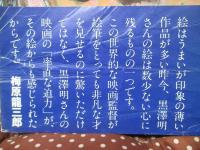 絵はうまいが印象の薄い
作品が多い昨今、黒澤明
さんの絵は数少ない心に
残るものの一つです。
この世界的な映画監督が
絵筆をとっても非凡な才
を見せるのに驚いただけ
ではなく、黒澤明さんの
映画の“率直な迫力”が、
その絵からも感じられた
からです。
梅原龍三郎